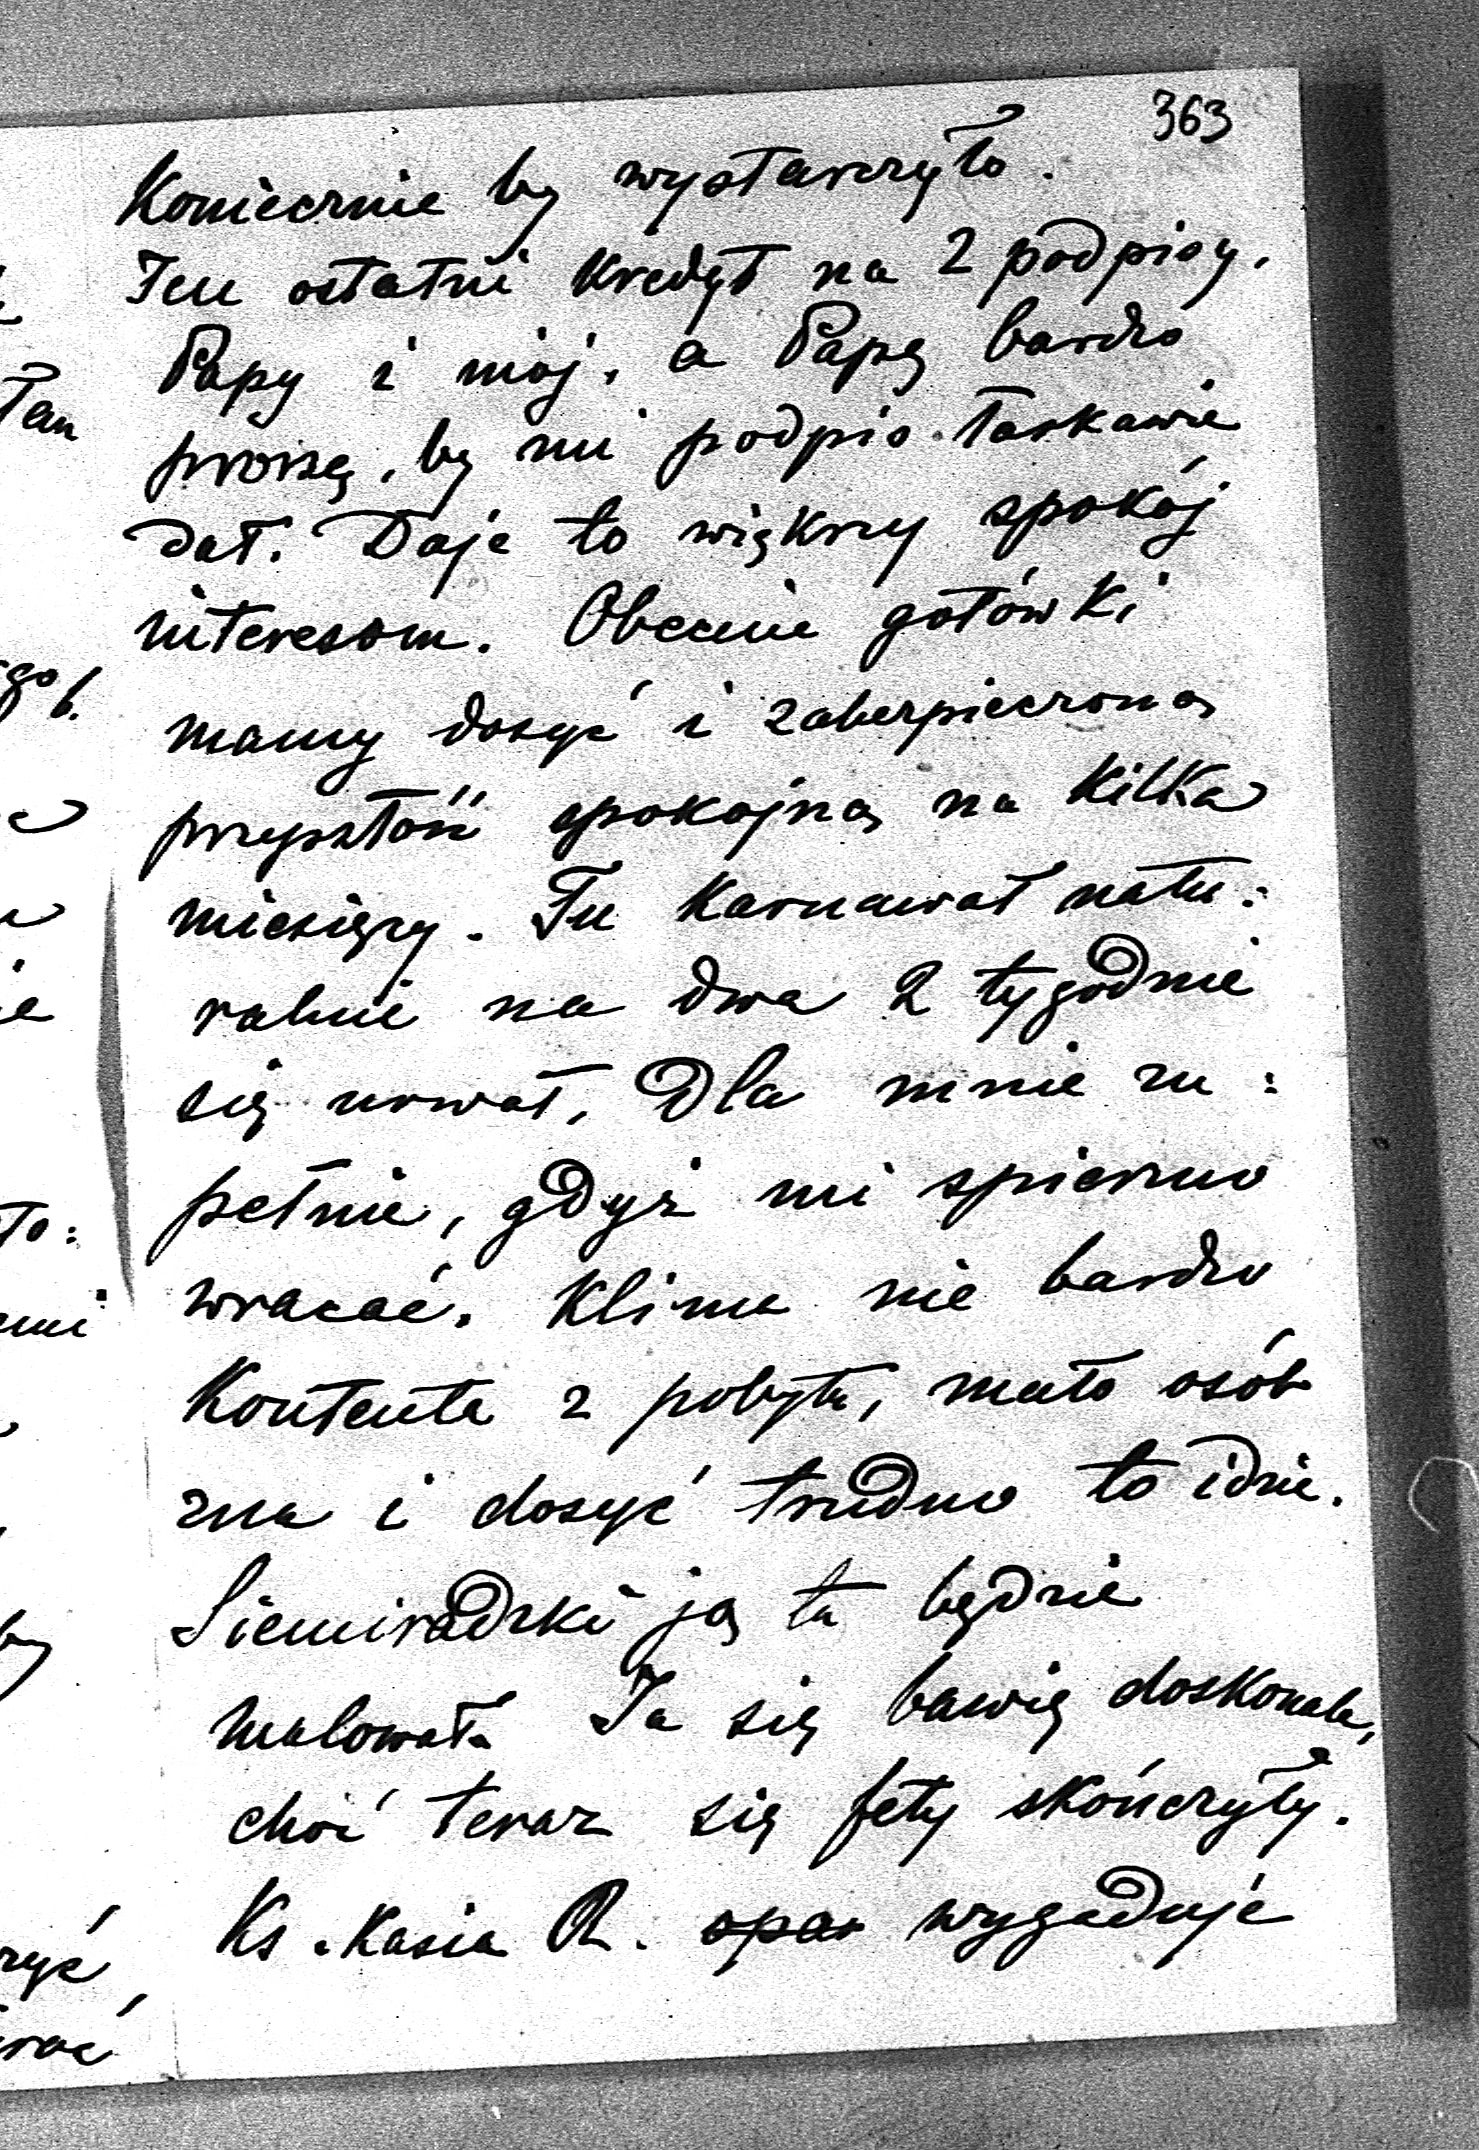 363
Koniecznie by wystarczyło.
Ten ostatni kredyt na 2 podpisy,
Papy i mój, a Papę bardzo
proszę, by mi podpis łaskawie
dał. Daje to większy spokój
interesom. Obecnie gotówki
mamy dosyć i zabezpieczoną
przyszłość spokojną na kilka
miesięcy. Tu karnawał natu:
ralnie na dwa 2 tygodnie
się urwał, Dla mnie zu:
pełnie, gdyż mi spieszno
wracać. Klima nie bardzo
kontenta z pobytu, mało osób
zna i dosyć trudno to idzie.
Siemiradzki ją tu będzie
malował. Ja się bawię doskonale,
choć teraz się fety skończyły.
Ks. Kasia R. wygaduje